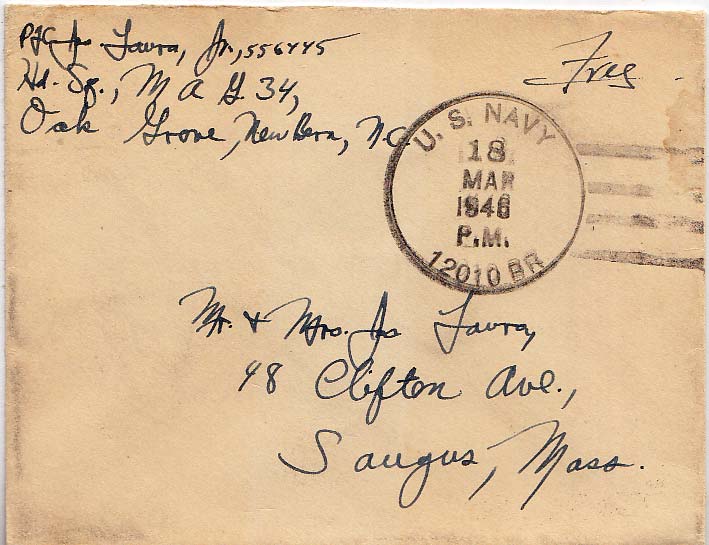 Pfc Jos. Favra, Jr., 556445
Hd. Sq., M A G 34,
Oak Grove, New Bern, N.C.
Free
U. S. NAVY
18
MAR
1946
P.M.
12010 BR
Mr. & Mrs. Jos Favra,
48 Clifton Ave.,
Saugus, Mass.